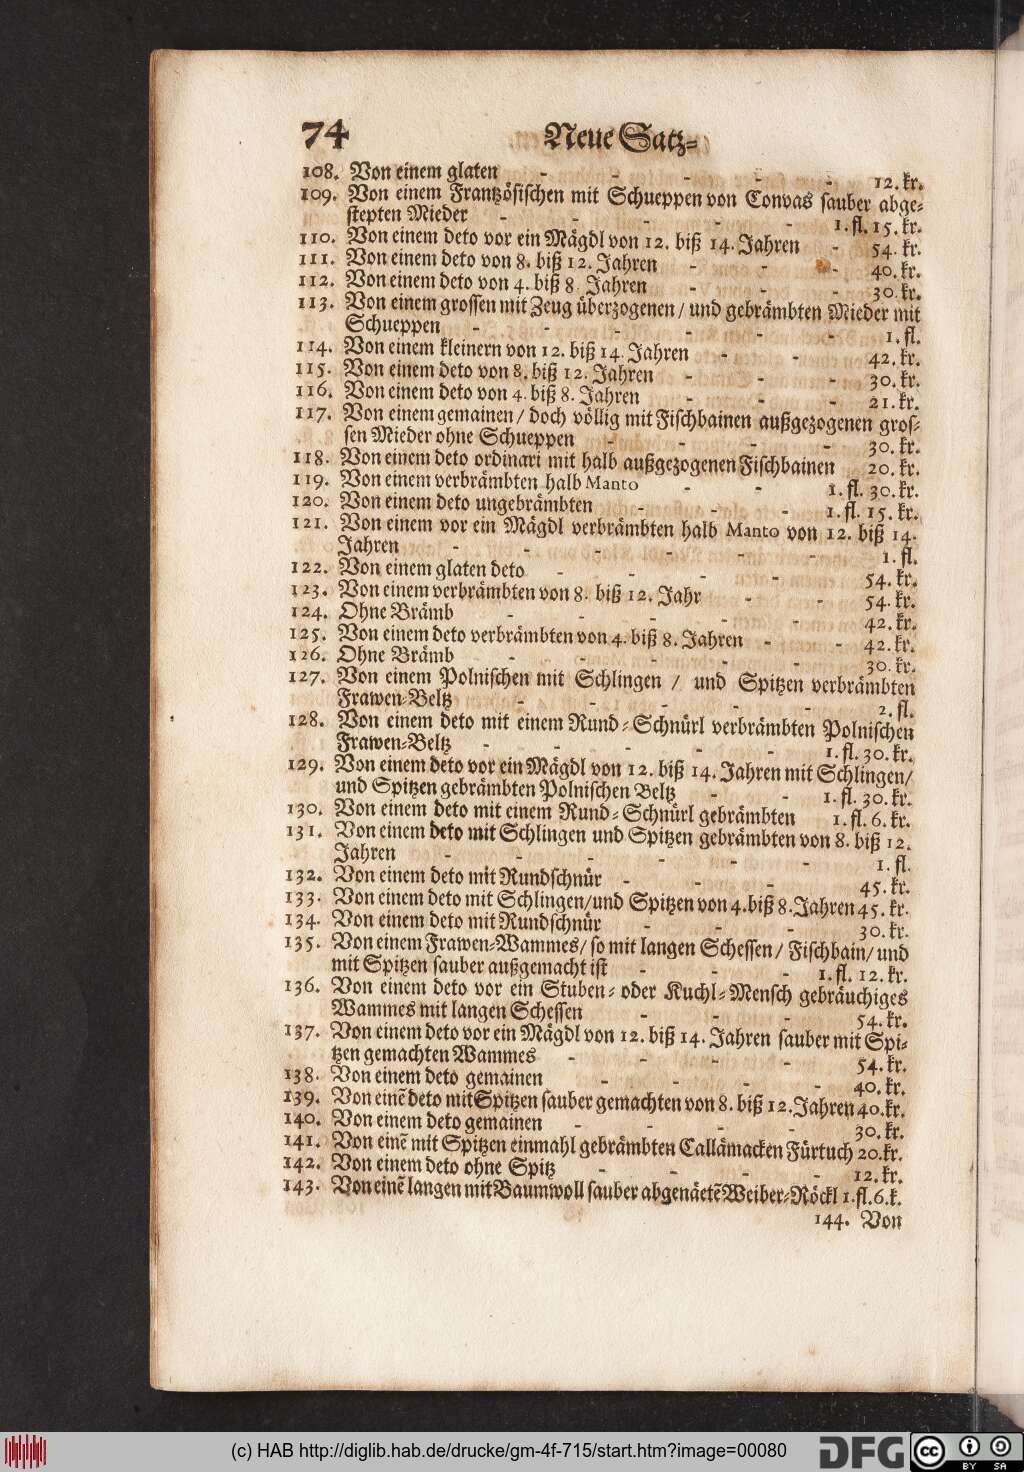 74 Neue Satz-
108. Von einem glaten - - - - - 12. kr.
109. Von einem Frantzösischen mit Schueppen von Convas sauber abge-
stepten Mieder - - - - - 1. fl. 15. kr.
110. Von einem deto vor ein Mägdl von 12. biß 14. Jahren - 54. kr.
111. Von einem deto von 8. biß 12. Jahren - - - 40. kr.
112. Von einem deto von 4. biß 8. Jahren - - - 30. kr.
113. Von einem grossen mit Zeug überzogenen / und gebrämbten Mieder mit
Schueppen - - - - - - 1. fl.
114. Von einem kleinern von 12. biß 14. Jahren - - 42. kr.
115. Von einem deto von 8. biß 12. Jahren - - - 30. kr.
116. Von einem deto von 4. biß 8. Jahren - - - 21. kr.
117. Von einem gemainen / doch völlig mit Fischbainen außgezogenen gros-
sen Mieder ohne Schueppen - - - - 30. kr.
118. Von einem deto ordinari mit halb außgezogenen Fischbainen 20. kr.
119. Von einem verbrämbten halb Manto - - 1. fl. 30. kr.
120. Von einem deto ungebrämbten - - - 1. fl. 15. kr.
121. Von einem vor ein Mägdl verbrämbten halb Manto von 12. biß 14.
Jahren - - - - - - 1. fl.
122. Von einem glaten deto - - - - 54. kr.
123. Von einem verbrämbten von 8. biß 12. Jahr - - 54. kr.
124. Ohne Brämb - - - - - 42. kr.
125. Von einem deto verbrämbten von 4. biß 8. Jahren - - 42. kr.
126. Ohne Brämb - - - - - 30. kr.
127. Von einem Polnischen mit Schlingen / und Spitzen verbrämbten
Frawen-Beltz - - - - - 2. fl.
128. Von einem deto mit einem Rund-Schnürl verbrämbten Polnischen
Frawen-Beltz - - - - - 1. fl. 30. kr.
129. Von einem deto vor ein Mägdl von 12. biß 14. Jahren mit Schlingen/
und Spitzen gebrämbten Polnischen Beltz - - 1. fl. 30. kr.
130. Von einem deto mit einem Rund-Schnürl gebrämbten 1. fl. 6. kr.
131. Von einem deto mit Schlingen und Spitzen gebrämbten von 8. biß 12.
Jahren - - - - - - 1. fl.
132. Von einem deto mit Rundschnür - - - 45. kr.
133. Von einem deto mit Schlingen/und Spitzen von 4. biß 8. Jahren 45. kr.
134. Von einem deto mit Rundschnür - - - 30. kr.
135. Von einem Frawen-Wammes/ so mit langen Schessen / Fischbain/ und
mit Spitzen sauber außgemacht ist - - - 1. fl. 12. kr.
136. Von einem deto vor ein Stuben- oder Kuchl-Mensch gebräuchiges
Wammes mit langen Schessen - - - 54. kr.
137. Von einem deto vor ein Mägdl von 12. biß 14. Jahren sauber mit Spi-
tzen gemachten Wammes - - - - 54. kr.
138. Von einem deto gemainen - - - - 40. kr.
139. Von einē deto mit Spitzen sauber gemachten von 8. biß 12. Jahren 40. kr.
140. Von einem deto gemainen - - - - 30. kr.
141. Von einē mit Spitzen einmahl gebrämbten Callämacken Fürtuch 20. kr.
142. Von einem deto ohne Spitz - - - - 12. kr.
143. Von einē langen mit Baumwoll sauber abgenäetē Weiber-Röckl 1. fl. 6. k.
144. Von
(c) HAB http://diglib.hab.de/drucke/gm-4f-715/start.htm?image=00080
DFG cc BY SA